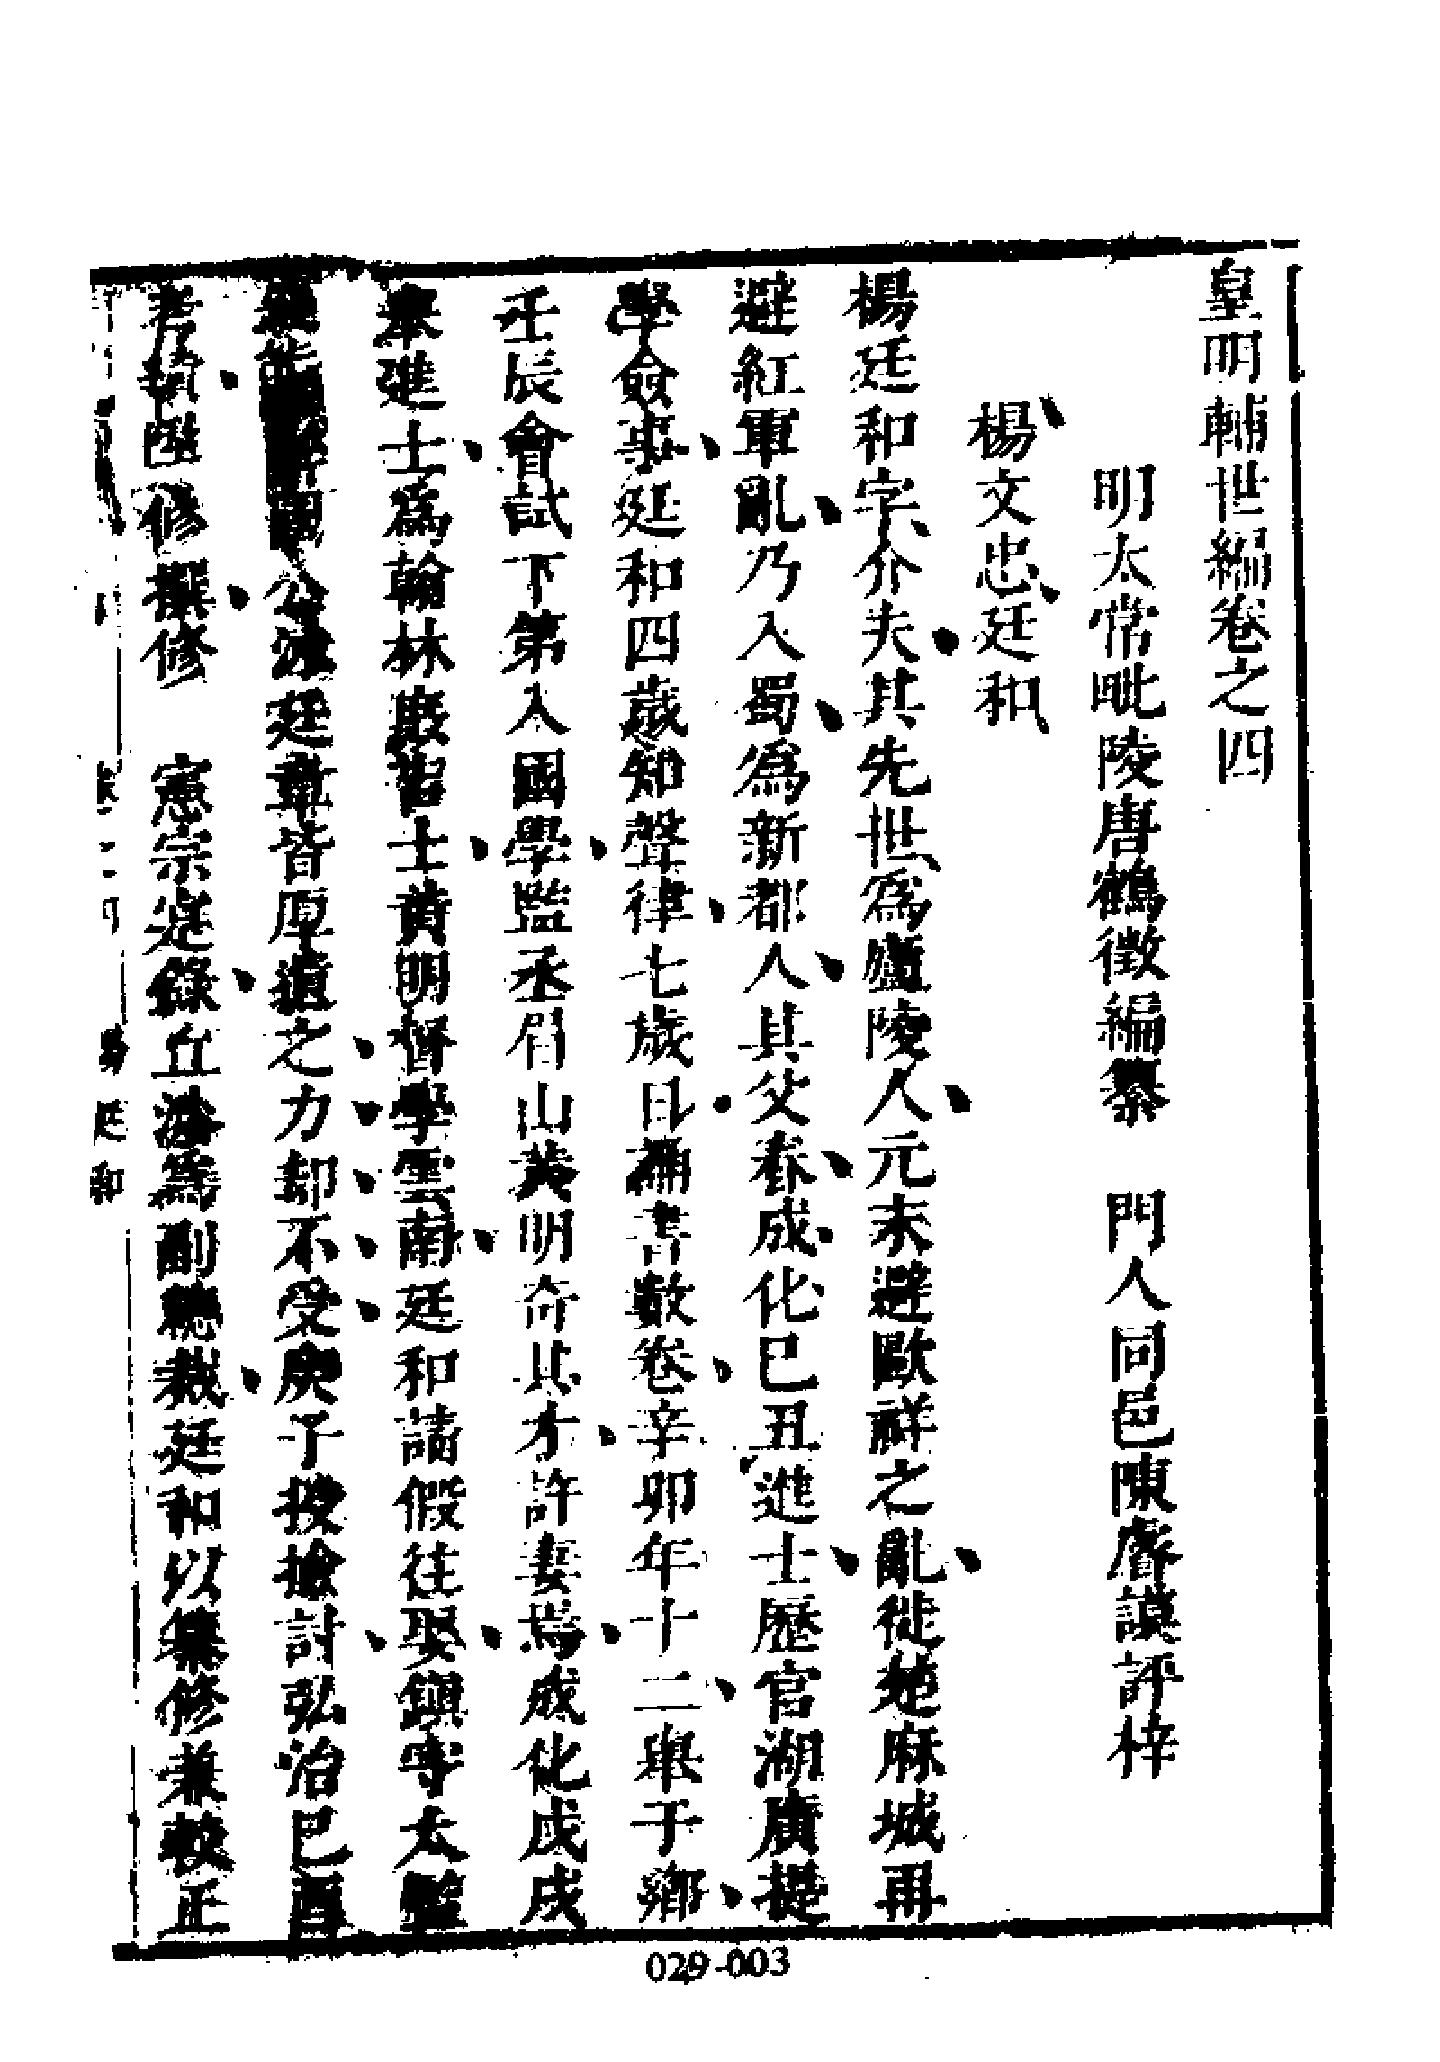 皇明輔世編卷之四
明太常毗陵唐鶴徵編纂　門人同邑陳睿謨評梓
楊文忠廷和
楊廷和字介夫其先世為廬陵人元末避歐祥之亂徙楚麻城再
避紅軍亂乃入蜀為新都人其父春成化巳丑進士歷官湖廣提
學僉事廷和四歲知聲律七歲日誦書數卷辛卯年十二舉于鄉
壬辰會試下第入國學監丞眉山黃明奇其才許妻焉成化戊戌
舉進士為翰林庶吉士黃明督學雲南廷和請假往娶鎮守太監
公沐廷章皆厚遺之力却不受庚子授檢討弘治巳酉
考績陞修撰修　憲宗寔錄丘濬為副總裁廷和以纂修兼較正
卷之四
楊廷和
029-003